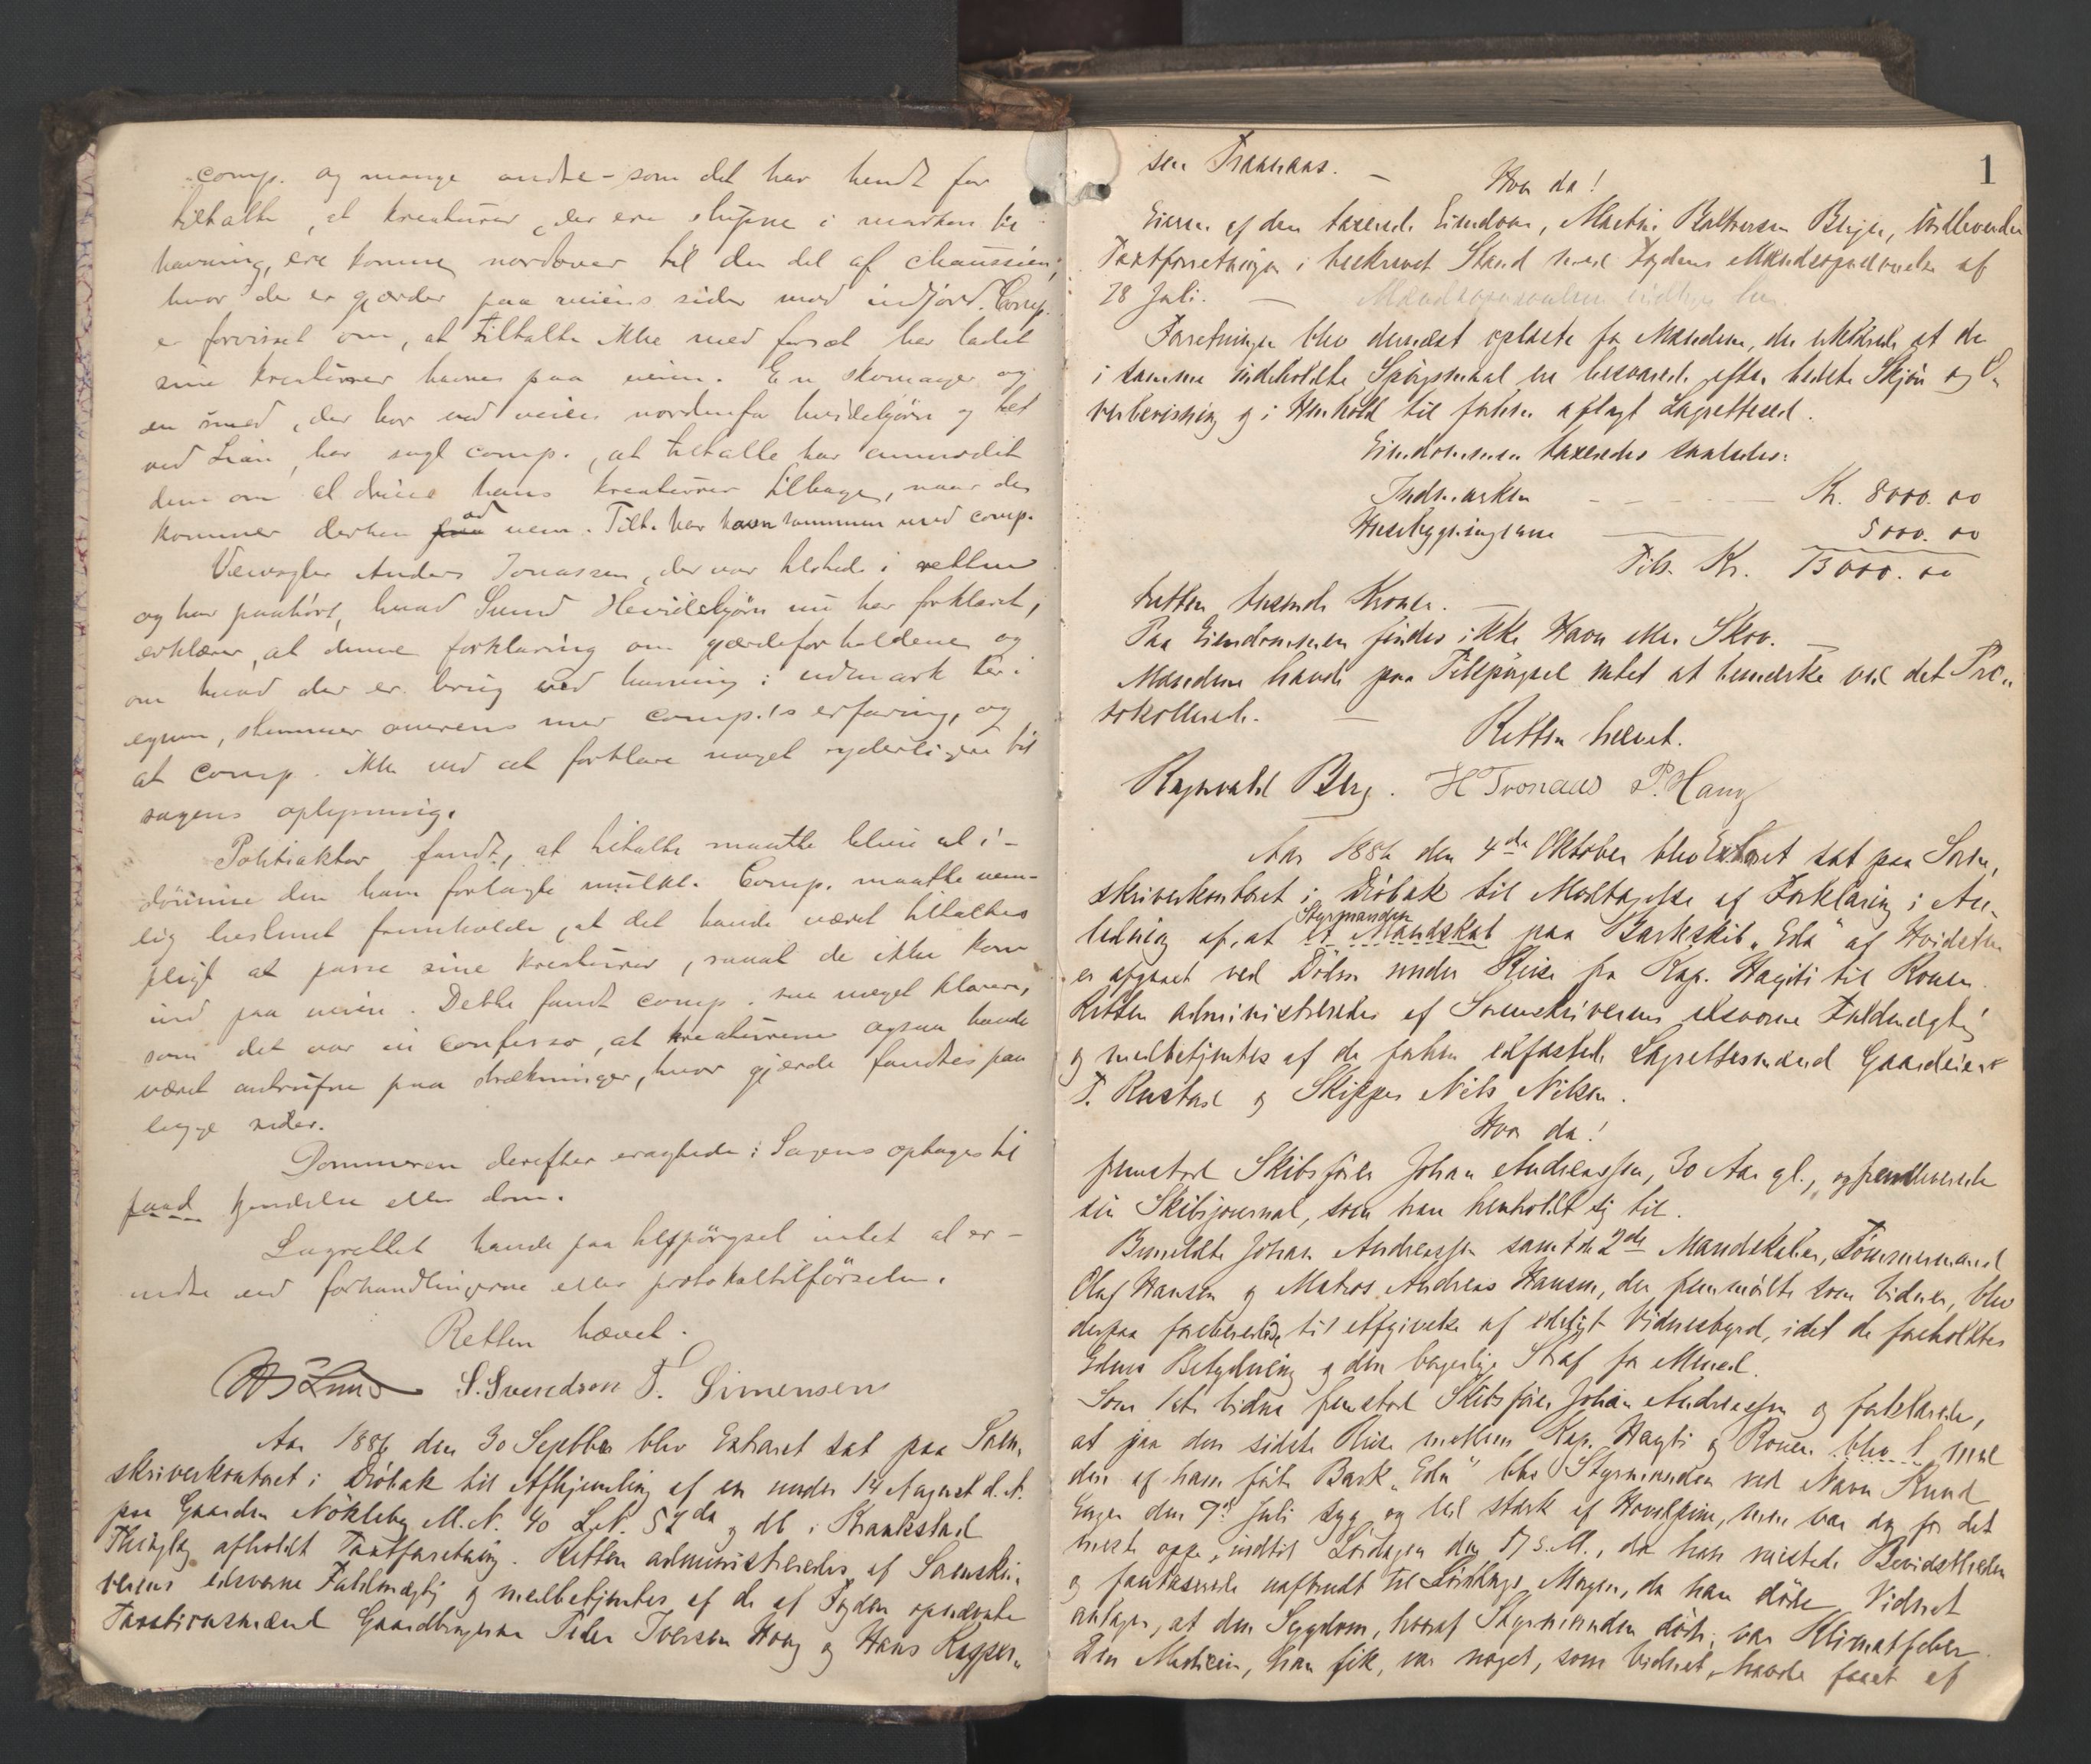 comp. og mange andre – som det har hendt for
tiltalte, at kreaturer, der ere slupne i marken til
havning, ere komne nordover til den del af chausséen,
hvor der er gjærder paa veiens sider mod indjord. Comp.
er forvisset om, at tiltalte ikke med forsæt har ladet
sine kreaturer havnes paa veien. En skomager og
en smed, der bor ved veien nordenfor Hvidebjørn og tæt
ved Lian, har sagt comp., at tiltalte har anmodet
dem om at drive hans kreaturer tilbage, naar de
kommer derhen ad veien. Tilt. har havn sammen med comp.
Veivogter Anders Jonassen, der var tilstede i retten
og har paahørt, hvad Lund Hvidebjørn nu har forklaret,
erklærer, at denne forklaring om gjærdeforholdene og
om hvad der er brug ved havning i udmark her i
egnen, stemmer overens med comp.ts erfaring, og
at comp. ikke ved at forklare noget yderligere til
sagens oplysning.
Politiaktor fandt, at tiltalte maatte blive at i-
dømme den ham forlagte mulkt. Comp. maatte nem-
lig bestemt fremholde, at det havde været tiltaltes
pligt at passe sine kreaturer, saaat de ikke kom
ind paa veien. Dette fandt comp. saa meget klarere,
som det var in confesso, at kreaturerne ogsaa havde
været antrufne paa strækninger, hvor gjerde fandtes paa
begge sider.
Dommeren derefter eragtede: Sagens optages til
kjendelse eller dom.
Lagrettet havde paa tilspørgsel intet at er-
indre ved forhandlingerne eller protokoltilførselen.
Retten hævet.
S. Svendsen T. Simensen
Aar 1886 den 30 Septbr blev Extraret sat paa Soren,
skriverkontoret i Drøbak til Afhjemling af en under 14 August d. A.
paa Gaarden Nökleby M. N. 40 L. N. 52 da og db i Kraakstad
Thinglag afholdt Taxtforretning. Retten administreredes af Sorenskri,
verens edsvorne Fuldmægtig og medbetjentes af de af Fogden opnævnte
Taxationsmænd Gaardbrugerne Peder Iversen Haug og Hans Kasper,
1
sen Tronaas. –
Hvor da!
Eieren af den taxerede Eiendom, Martin Balthersen Berger, indleverede
Taxtforretningen i beskrevet Stand med Fogdens Mandsopnævnelse af
28 Juli. – Mandsopnævnelsen indtages her.
Forretningen blev dernæst oplæste for Mændene, der erklærede at de
i samme indeholdte Spørgsmaal ere besvarede efter bedste Skjøn og O,
verbevisning og i Henhold til forhen aflagt Lagretteed.
Eiendommen taxeredes saaledes:
Indmarken – – – – Kr. 8000.00
Husebygningerne 5000.00
Tils. Kr. 13000.00
tretten tusende Kroner. –
Paa Eiendommen findes ikke Havn eller Skov. –
Mændene havde paa Tilspørgsel intet at bemærke ved det Pro,,
tokollerede. –
Retten hævet.
Ragnvald Berg. H Tronaas P. Haug
Aar 1886 den 4de Oktober blev Extraret sat paa Soren,
skriverkontoret i Drøbak til Modtagelse af Forklaring i An,
ledning af, at Styrmanden et Mandskab paa Barkskib „Eda" af Hvidsten
er afgaaet ved Døden under Reise fra Kap. Hayti til Rouen.
Retten administreredes af Sorenskriverens edsvorne Fuldmægtig
og medbetjentes af de forhen edfæstede Lagrettesmænd Gaardeier
T. Rustad og Skipper Nils Nilsen.
Hvor da!
fremstod Skibsfører Johan Andreassen, 30 Aar gl., og fremleverede
sin Skibsjournal, som han henholdt sig til.
Bemeldte Johan Andreassen samt de 2de Mandskaber, Tømmermand
Olaf Hansen og Matros Andreas Hansen, der fremmødte som Vidner, blev
derpaa forberedede til Afgivelse af edeligt Vidnesbyrd, idet de foreholdtes
Edens Betydning og den borgerlige Straf for Mened.
Som 1ste Vidne fremstod Skibsfører Johan Andreassen og forklarede,
at paa den sidste Reise mellem Kap. Hayti og Rouen blev S. med
den af ham førte Bark „Eda" blev Styrmanden ved Navn Knud
Enger den 9de Juli syg og led stærk af Hovedpine, men var dog for det
meste oppe, indtil Lørdagen den 17 s. M., da han mistede Bevidstheden
og fantaserede uafbrudt til Søndags Morgen, da han døde. Vidnet
antager, at den Sygdom, hvoraf Styrmanden døde, var Klimatfeber.
Den Medicin, han fik, var noget, som Vidnet havde faaet af